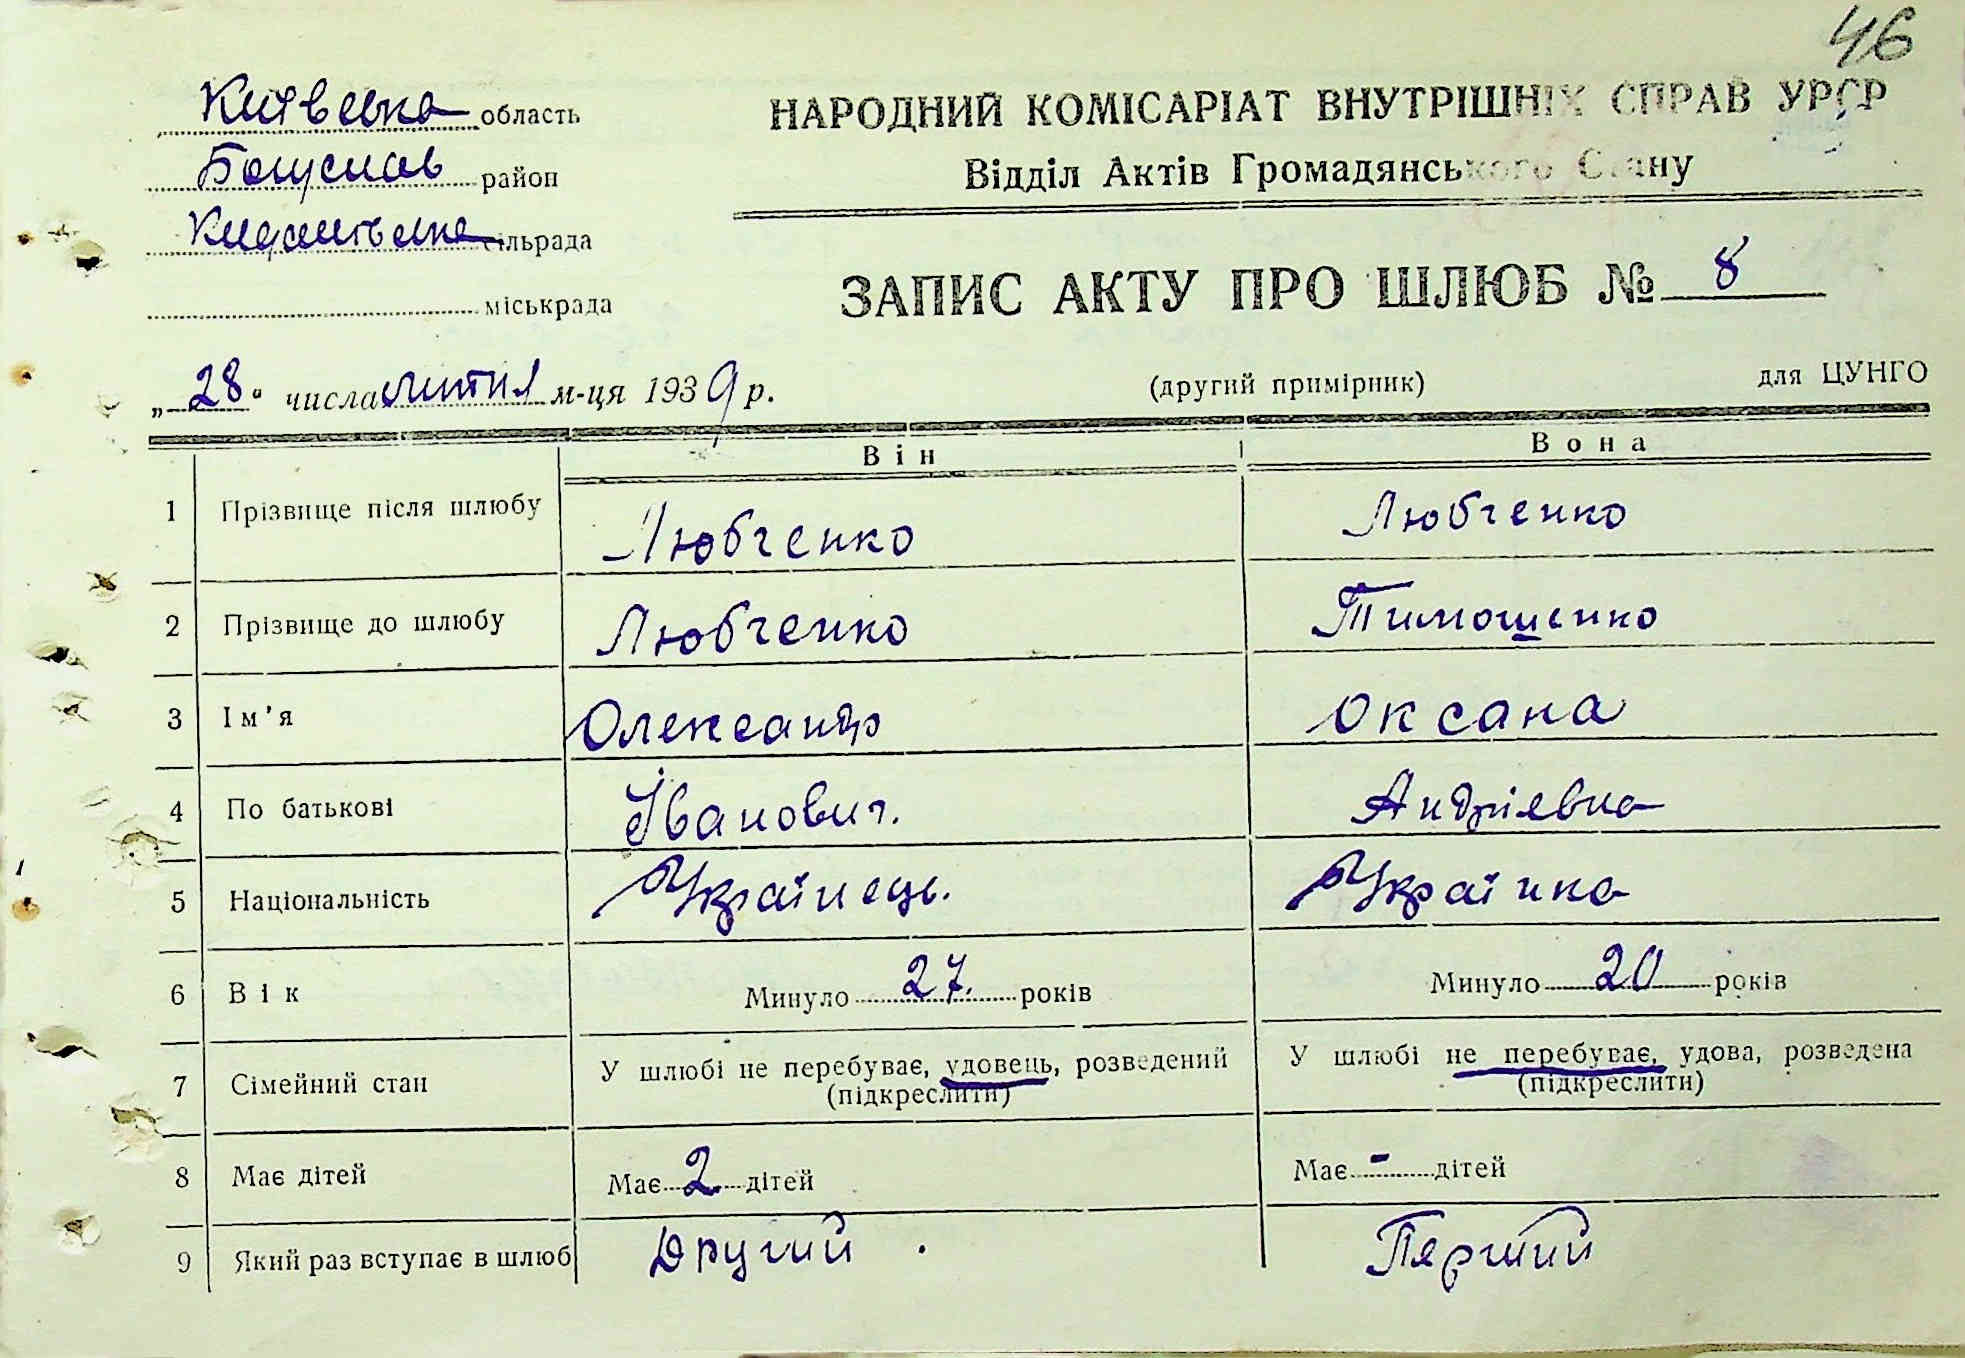 46
Київська область
Богуслав район
сільрада
міськрада
НАРОДНИЙ КОМІСАРІАТ ВНУТРІШНІХ СПРАВ УРСР
Відділ Актів Громадянського Стану
ЗАПИС АКТУ ПРО ШЛЮБ № 8
„28“ числа лютня м-ця 1939 р.
(другий примірник)
для ЦУНГО
Він Вона
1 Прізвище після шлюбу Любченко Любченко
2 Прізвище до шлюбу Любченко Тимошенко
3 Ім'я Олександр Оксана
4 По батькові Іванович. Андріевна
5 Національність Українець. Українка
6 Вік Минуло 27. років Минуло 20 років
7 Сімейний стан У шлюбі не перебуває, удовець, розведений У шлюбі не перебуває, удова, розведена
(підкреслити) (підкреслити)
8 Має дітей Має 2 дітей Має - дітей
9 Який раз вступає в шлюб Другий. Перший